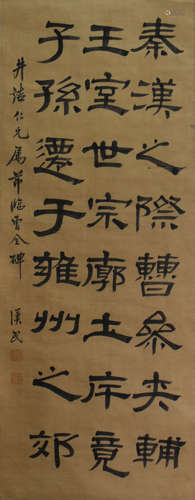 秦漢之際曹參夾輔
王室世宗廓土斥竟
子孫遷于雍州之郊
井仁兄屬節臨曹全碑
漢民